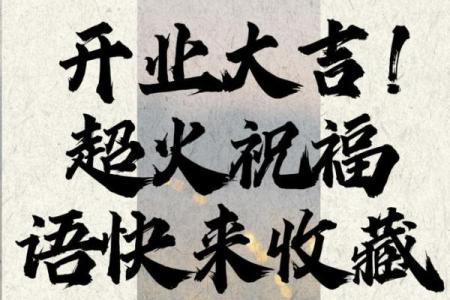 开业大吉!
超火祝福
语快来收藏